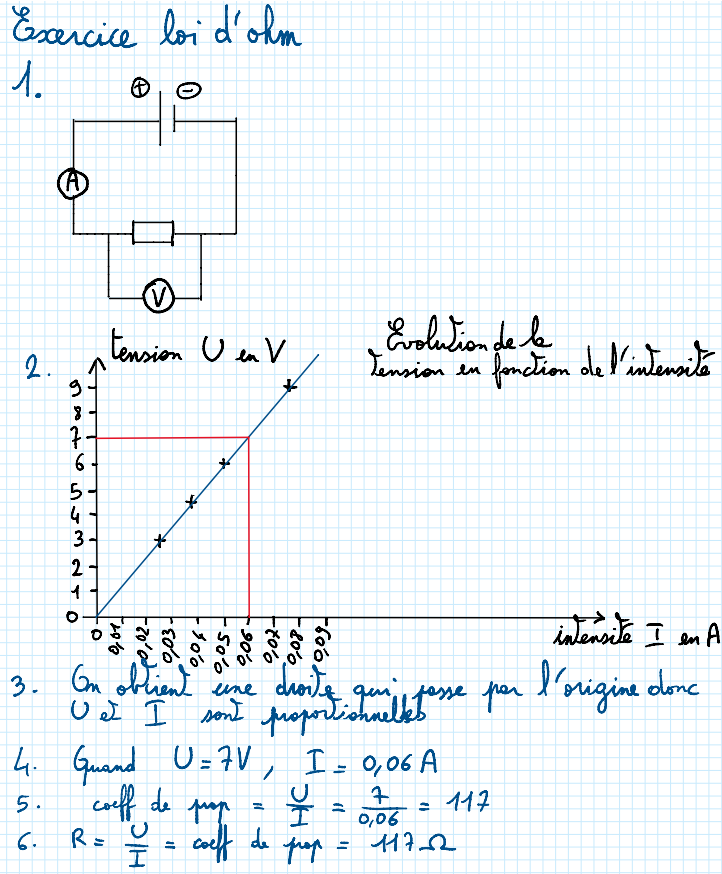 Exercice loi d'ohm
1.
+ -
A
V
2.
tension U en V
Evolution de la
tension en fonction de l'intensité
9
8
7
6
5
4
3
2
1
0
0 0,01 0,02 0,03 0,04 0,05 0,06 0,07 0,08 0,09
intensité I en A
3. On obtient une droite qui passe par l'origine donc
U et I sont proportionnelles
4. Quand U = 7V, I = 0,06 A
5. coeff de prop = U/I = 7/0,06 = 117
6. R = U/I = coeff de prop = 117 Ω